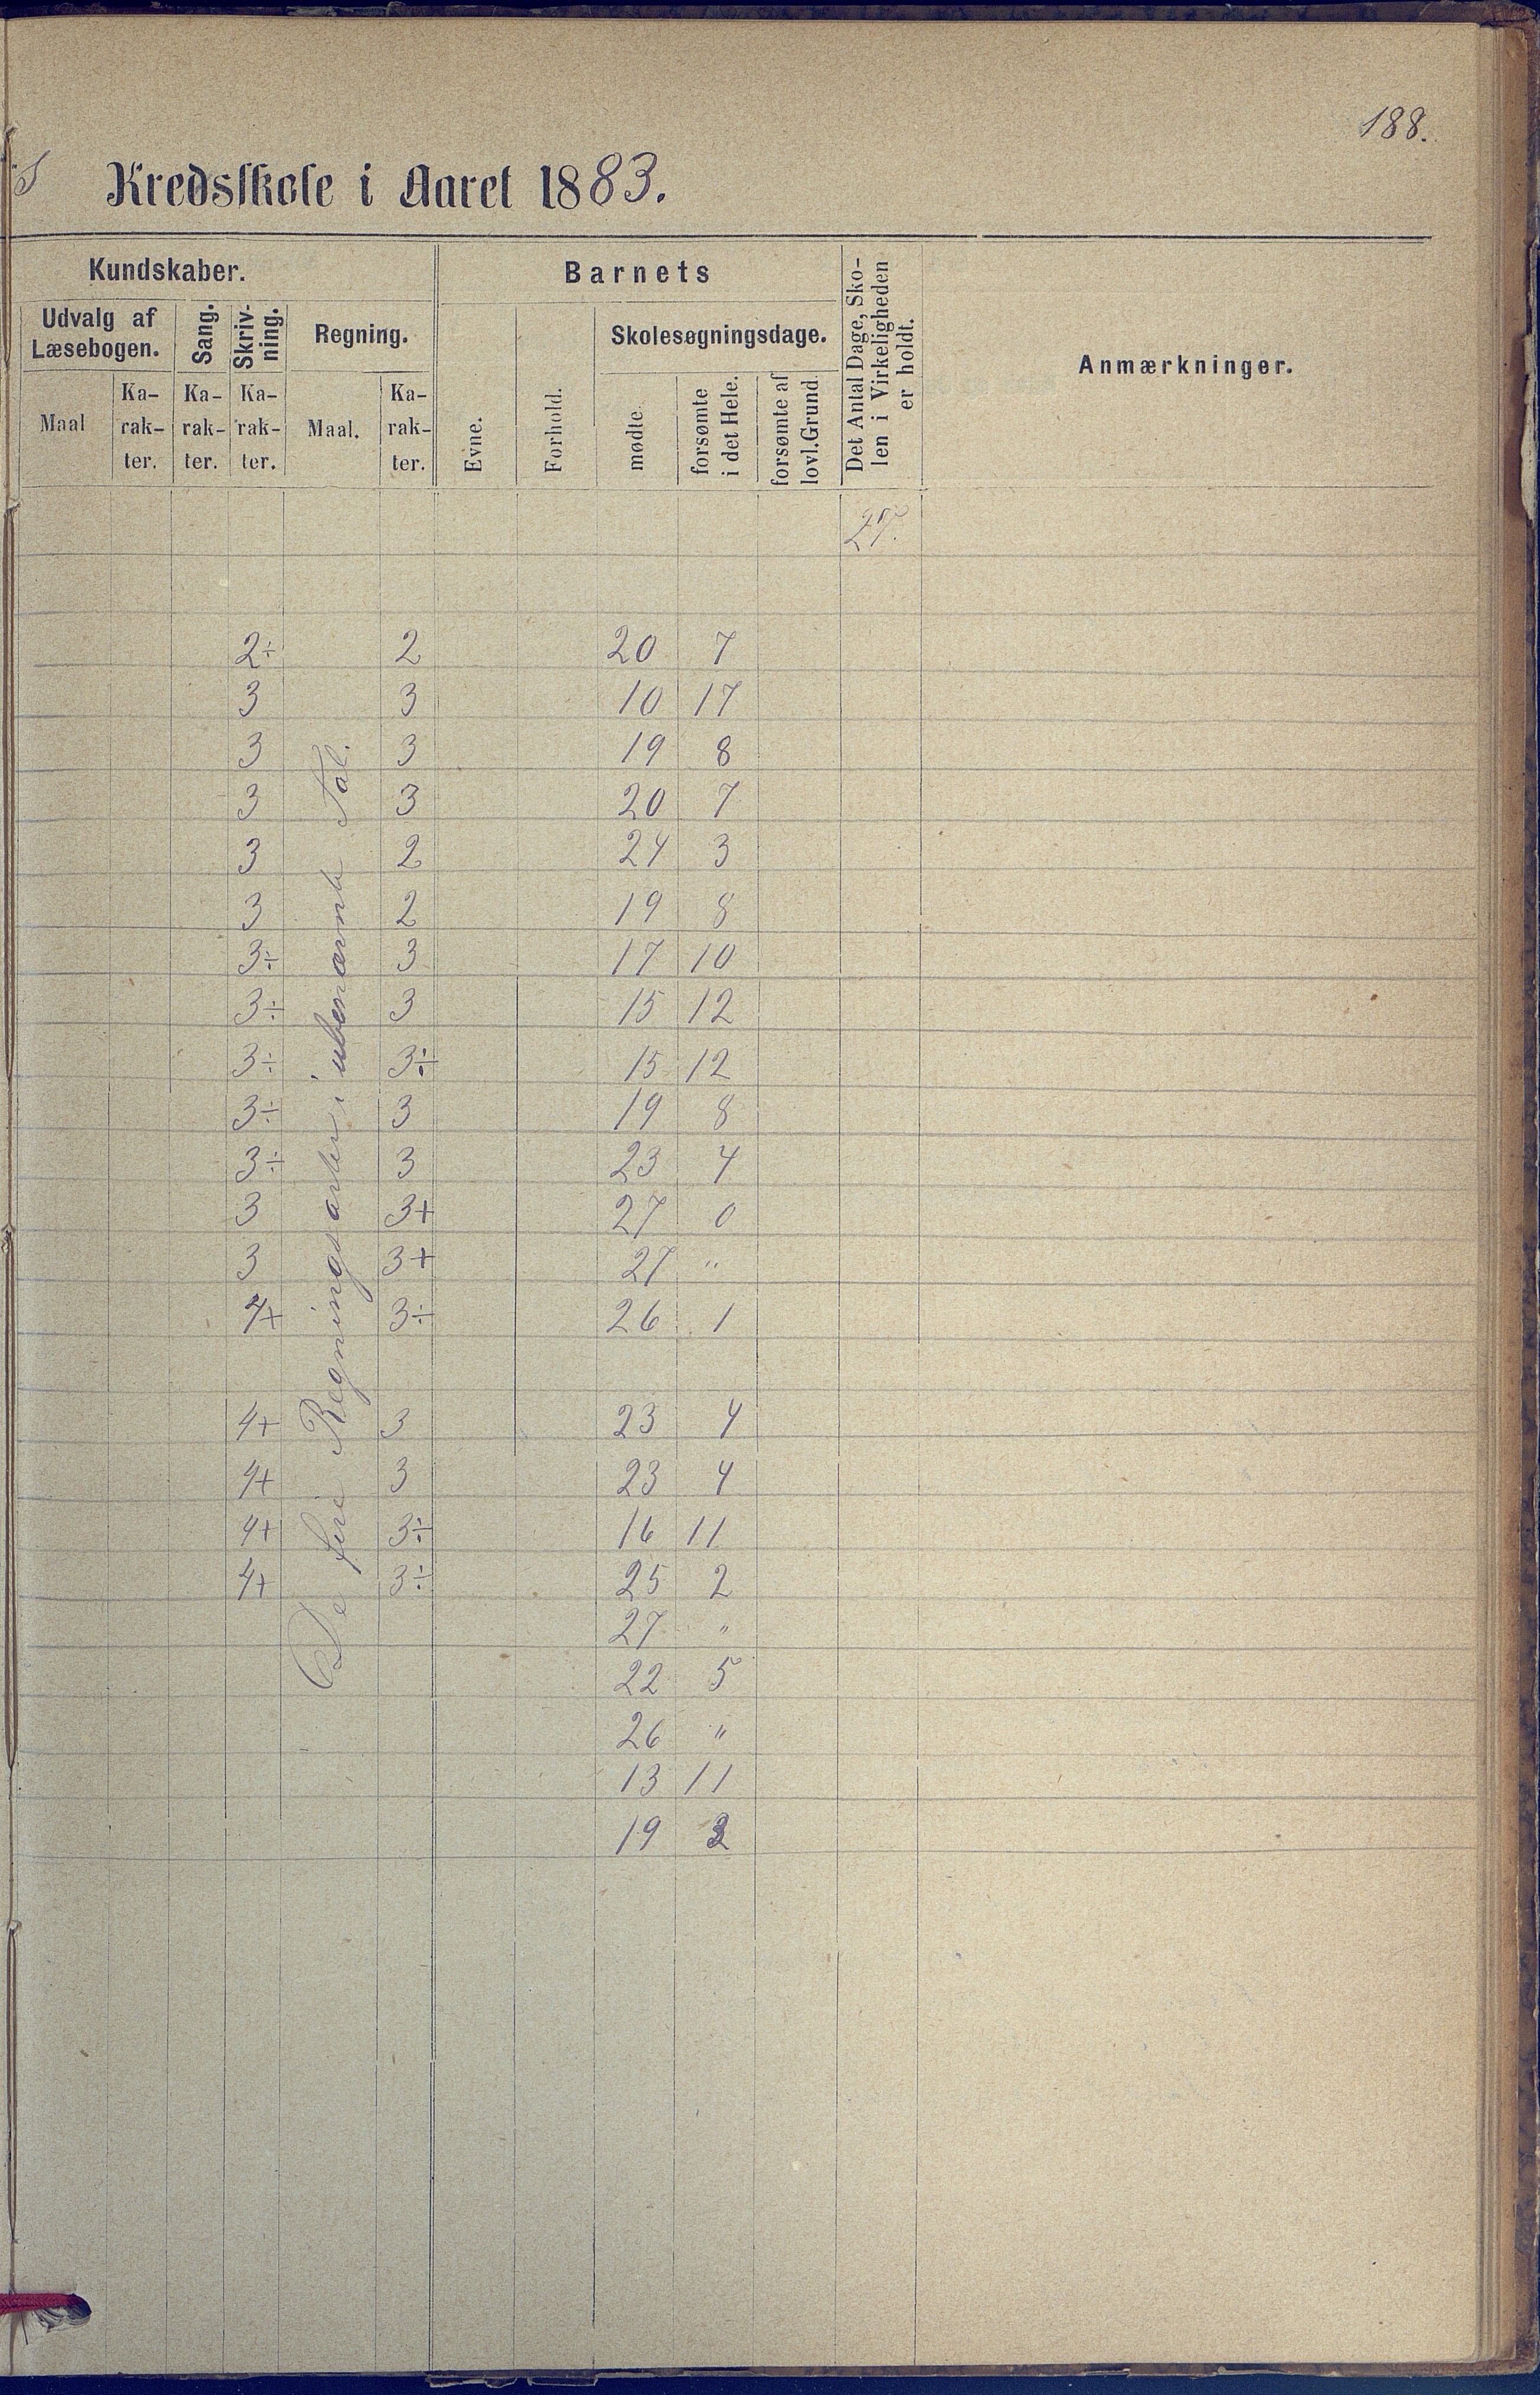 188.
s Kredsskole i Aaret 1883.
Kundskaber.
Barnets
Det Antal Dage, Sko-
len i Virkeligheden
er holdt.
Anmærkninger.
Udvalg af
Læsebogen.
Sang.
Skriv-
ning.
Regning.
Skolesøgningsdage.
Maal
Ka-
rak-
ter.
Ka-
rak-
ter.
Ka-
rak-
ter.
Maal.
Ka-
rak-
ter.
Evne.
Forhold.
mødte.
forsømte
i det Hele.
forsømte af
lovl. Grund.
27.
De fire Regningsarter i ubenævnte Tal.
2÷ 2 20 7
3 3 10 17
3 3 19 8
3 3 20 7
3 2 24 3
3 2 19 8
3÷ 3 17 10
3÷ 3 15 12
3÷ 3÷ 15 12
3÷ 3 19 8
3÷ 3 23 4
3 3+ 27 0
3 3+ 27 "
4+ 3÷ 26 1
4+ 3 23 4
4+ 3 23 4
4+ 3÷ 16 11
4+ 3÷ 25 2
27 "
22 5
26 "
13 11
19